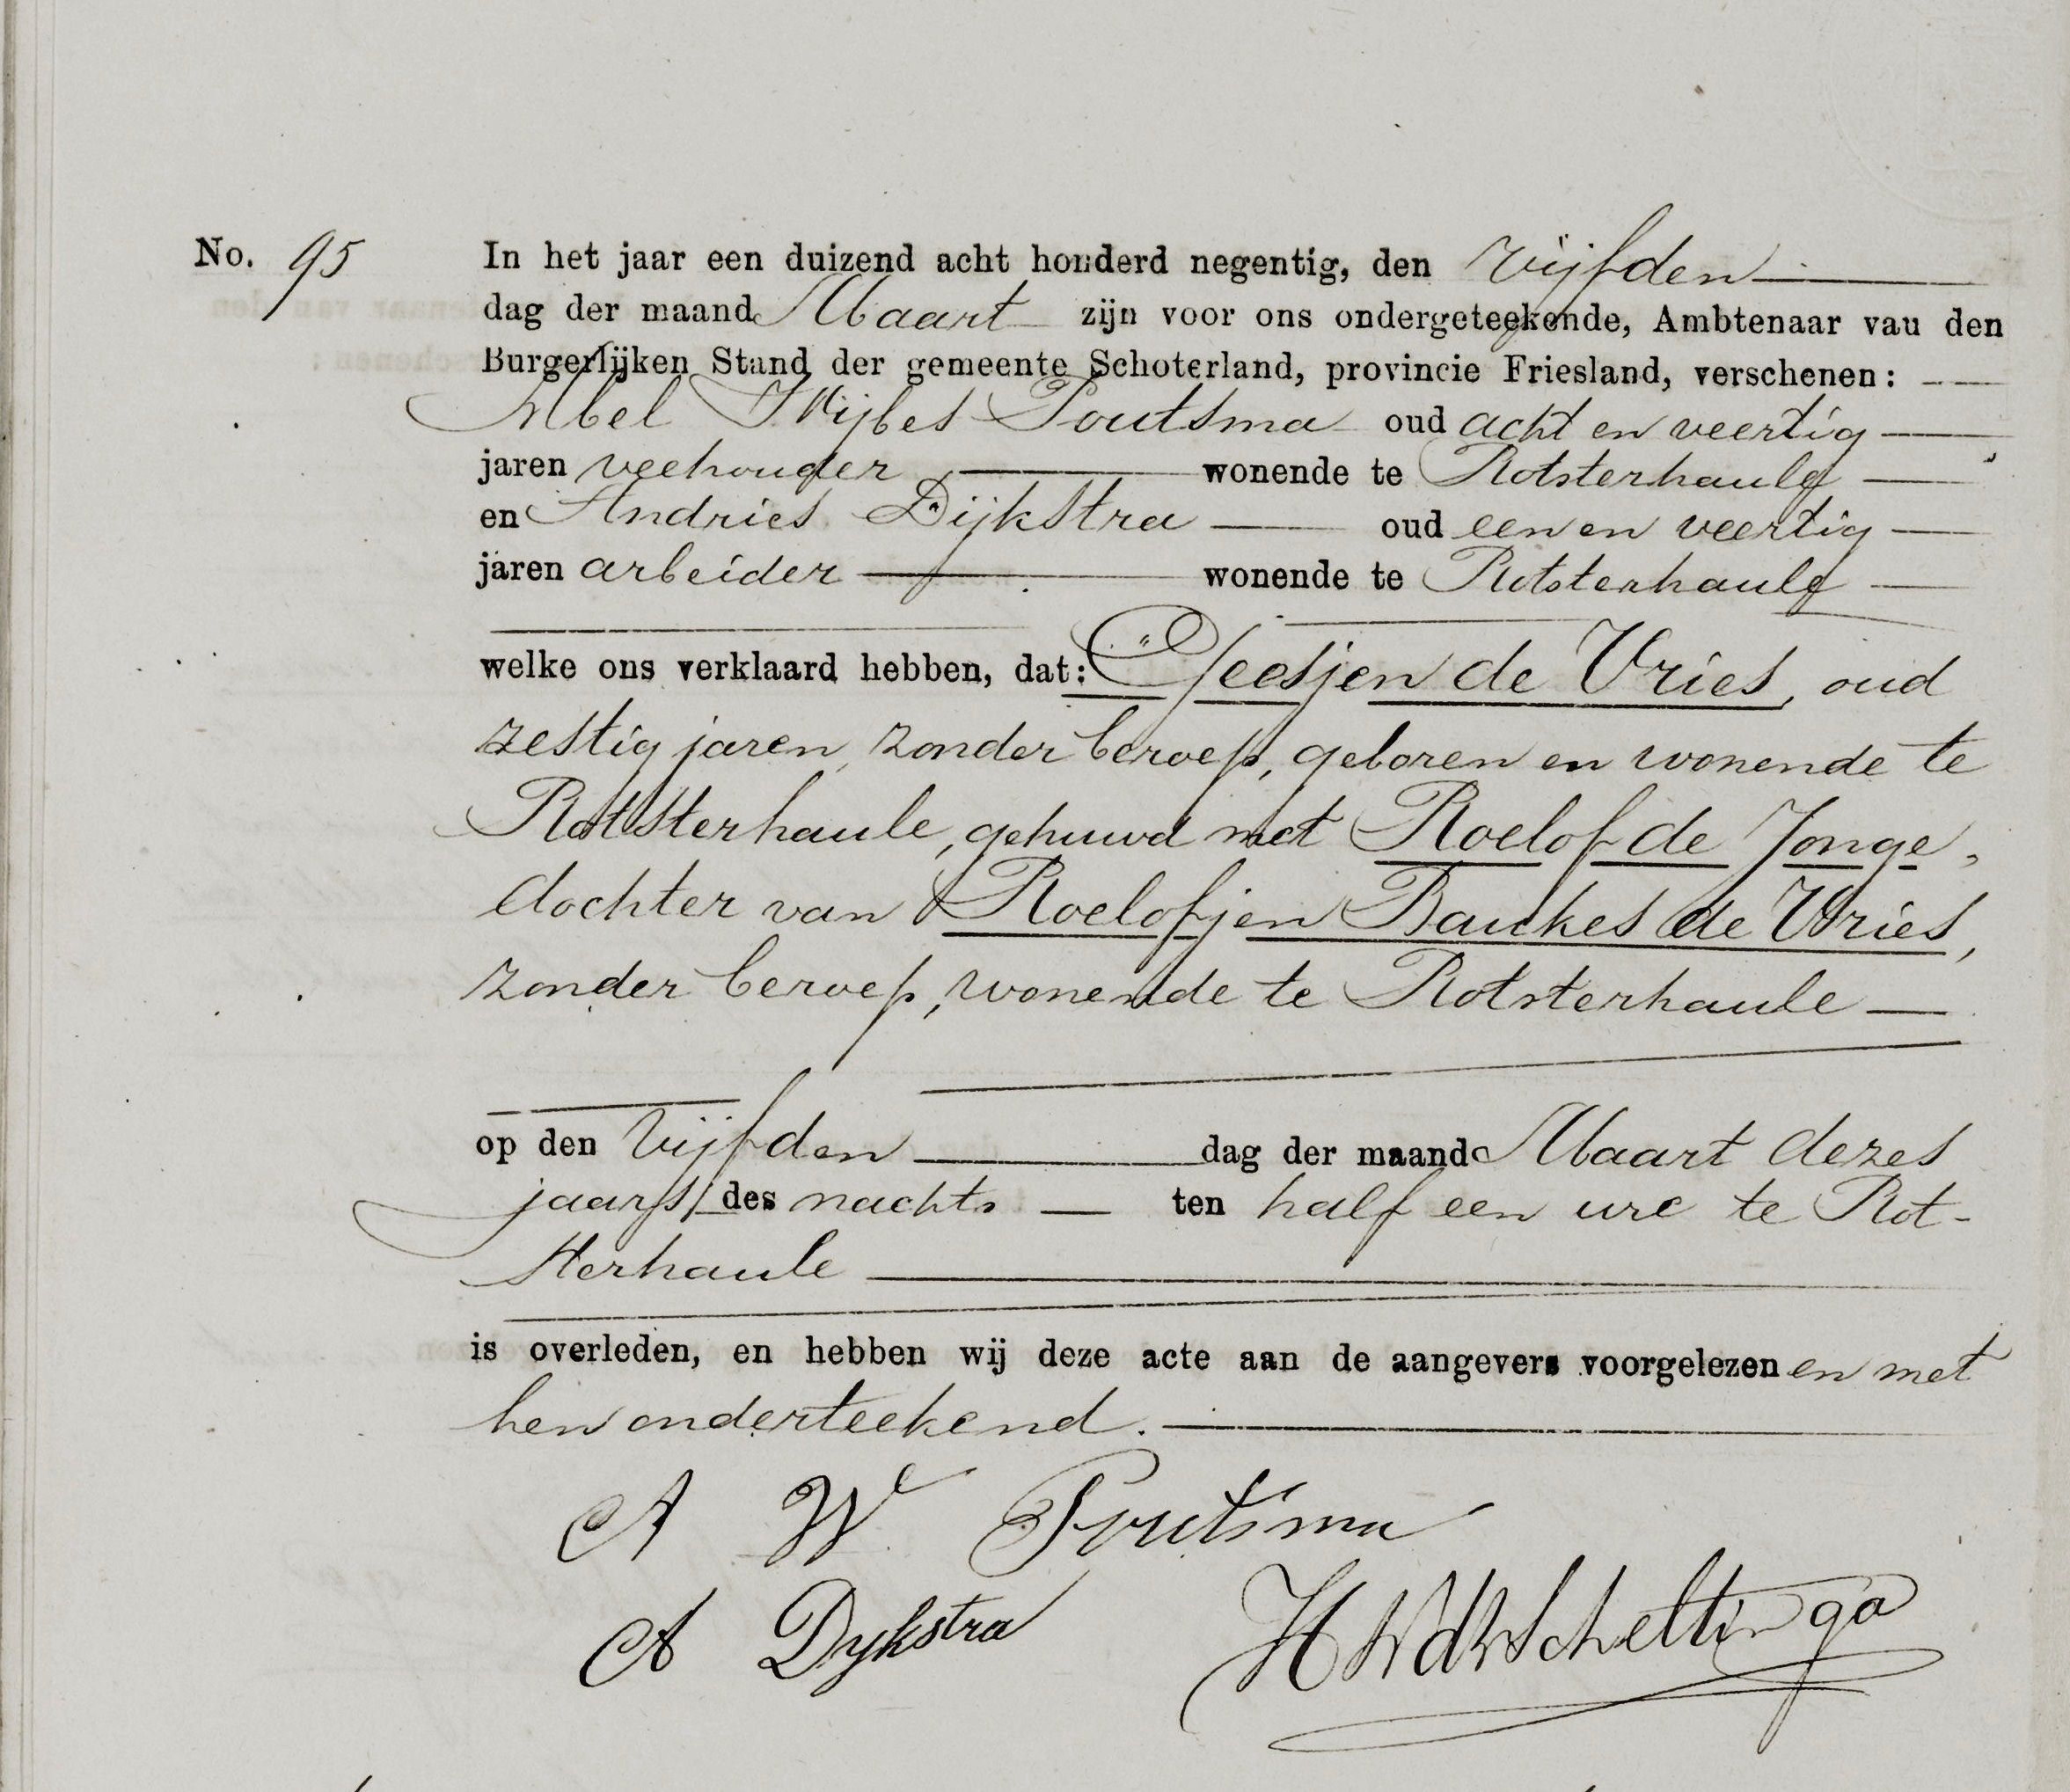 No. 95
In het jaar een duizend acht honderd negentig, den vijfden
dag der maand Maart zijn voor ons ondergeteekende, Ambtenaar van den
Burgerlijken Stand der gemeente Schoterland, provincie Friesland, verschenen:
Abel Wijbes Poutsma oud acht en veertig
jaren veehouder wonende te Rotsterhaule
en Andries Dijkstra oud een en veertig
jaren arbeider wonende te Rotsterhaule
welke ons verklaard hebben, dat: Geesjen de Vries, oud
zestig jaren, zonder beroep, geboren en wonende te
Rotsterhaule, gehuwd met Roelof de Jonge,
dochter van Roelofjen Baukes de Vries,
zonder beroep, wonende te Rotsterhaule
op den vijfden dag der maand Maart dezes
jaars, des nachts ten half een ure te Rot-
sterhaule
is overleden, en hebben wij deze acte aan de aangevers voorgelezen en met
hen onderteekend.
A W Poutsma
A Dykstra
Scheltinga